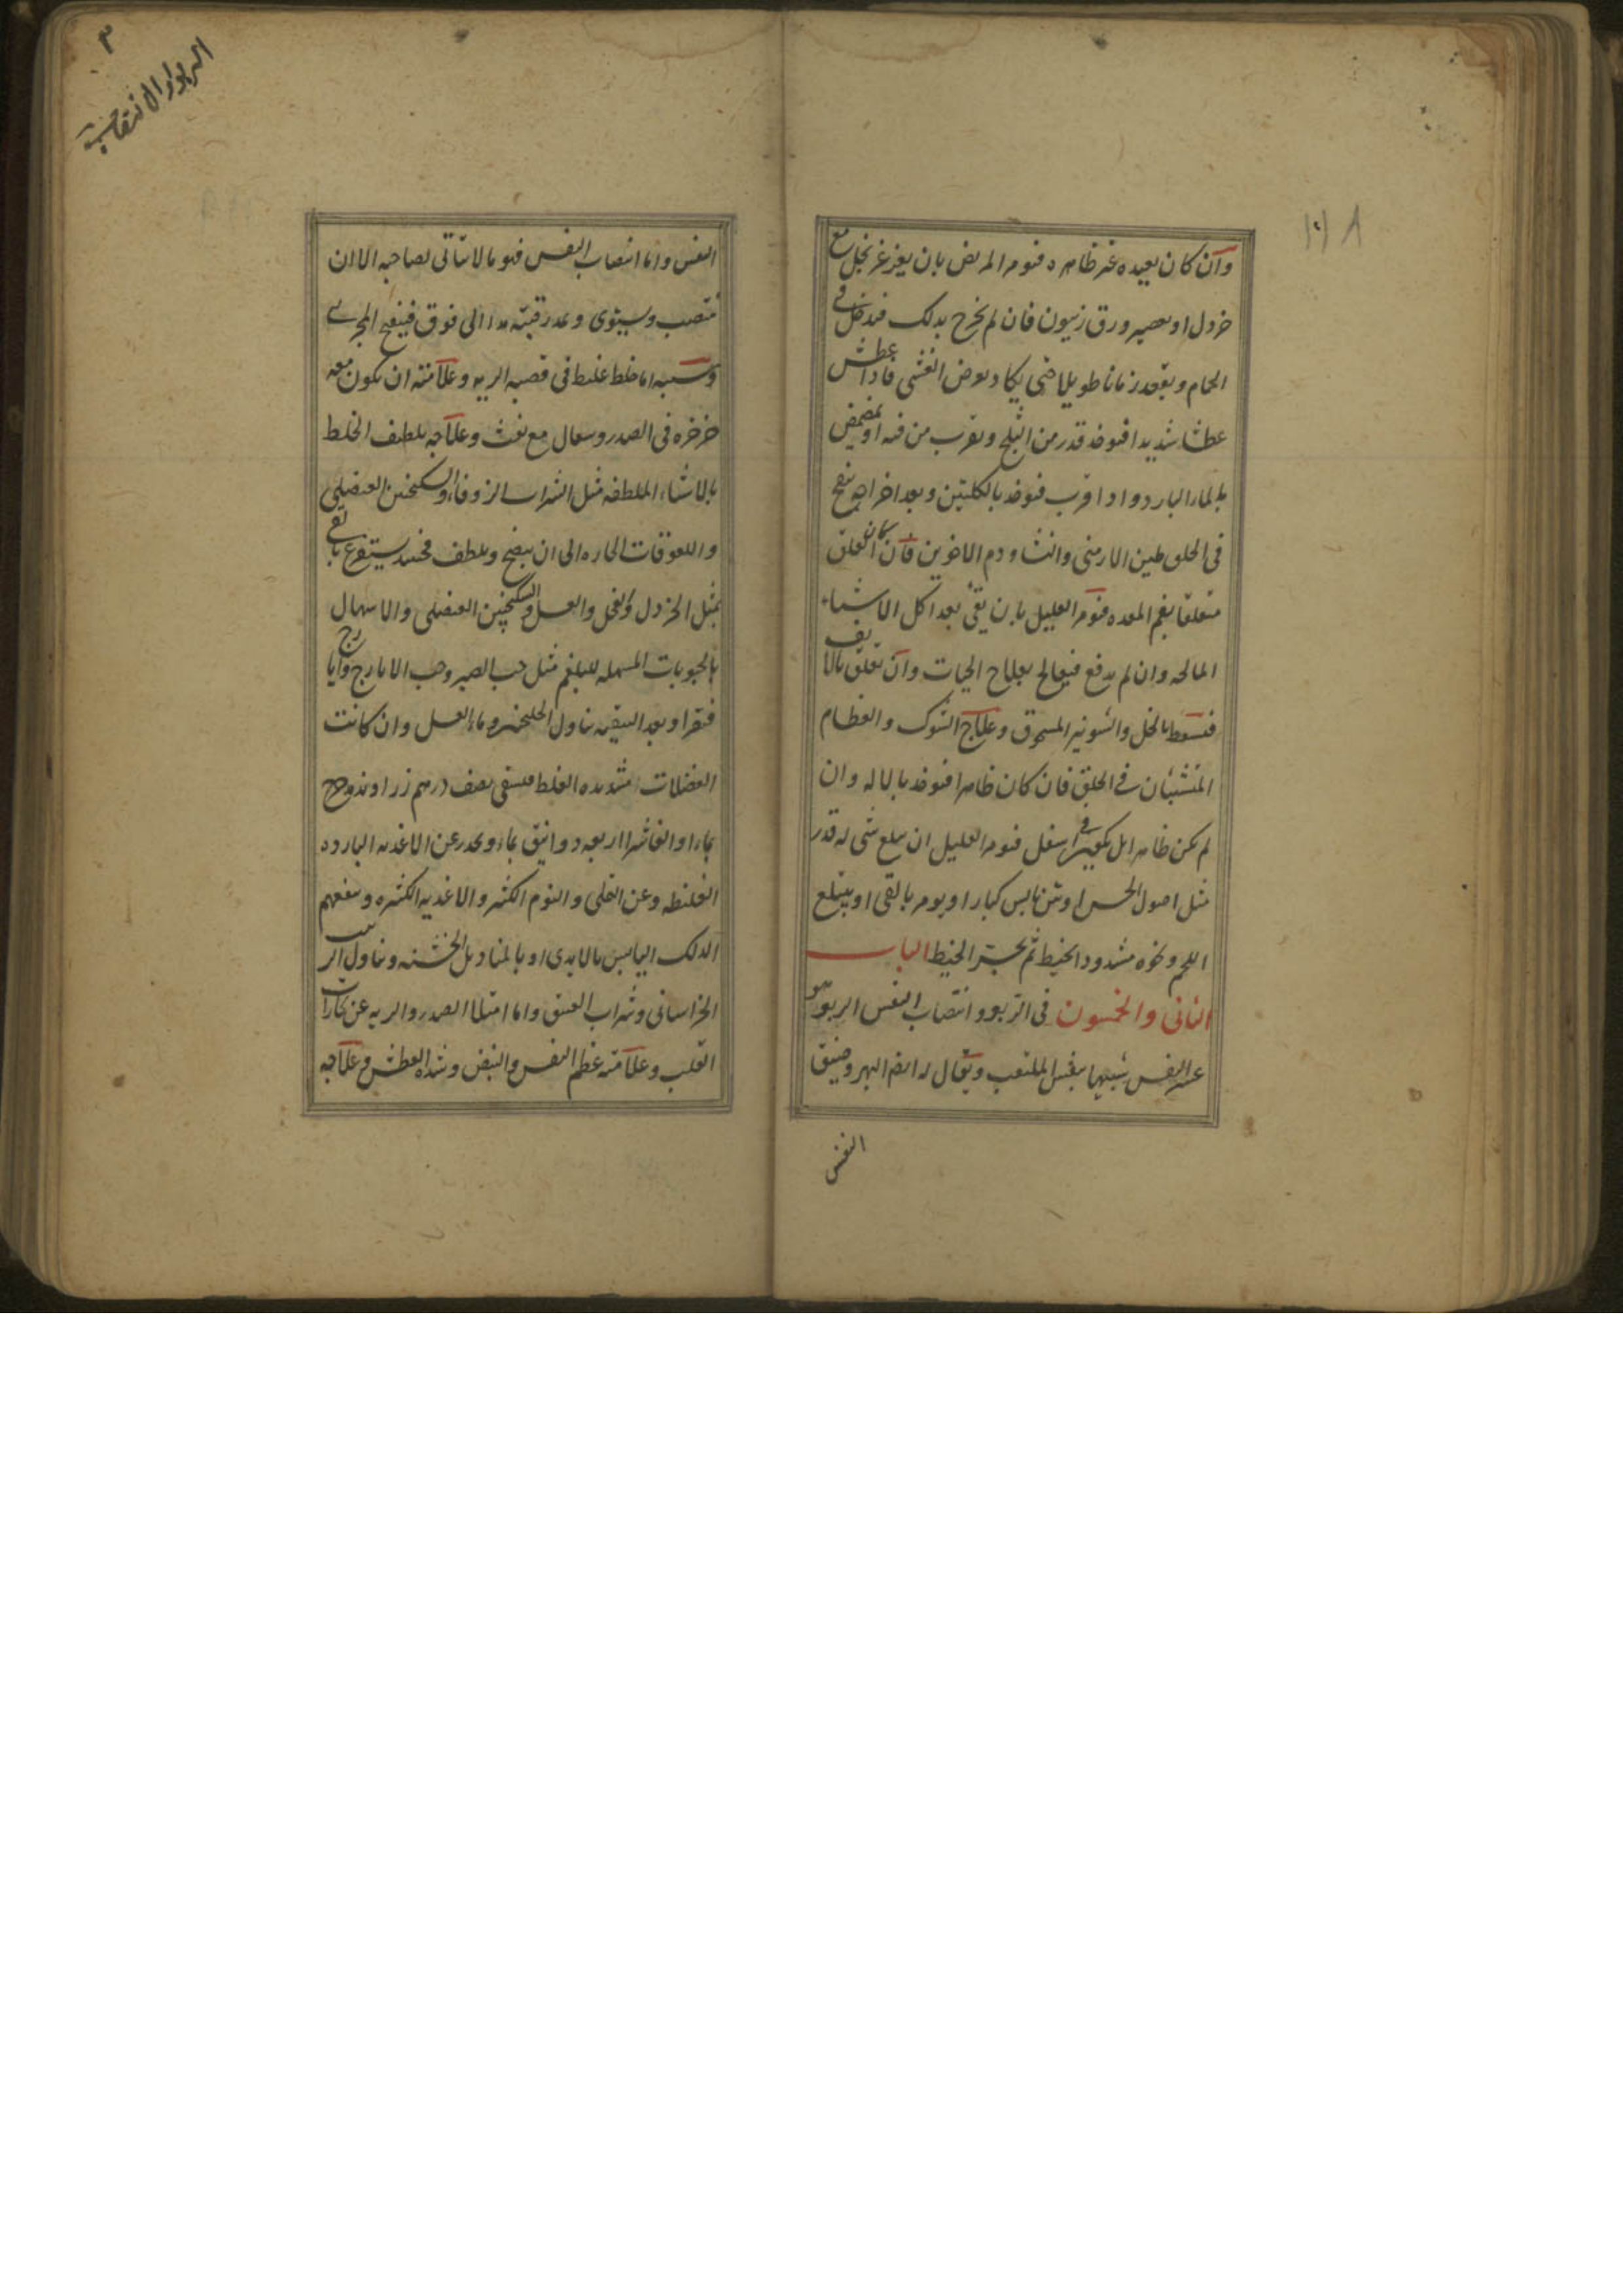 وان كان بعيده غير ظاهره فيؤمر المريض بان يغرغر بخل مع
خردل او بعصير ورق زيتون فان لم يخرج بذلك فيدخل في
الحمام ويقعد زمانا طويلا حتى يكاد يعرض الغشى فاذا عطش
عطشا شديدا فيؤخذ قدر من الثلج ويقرب من فمه او تمضمض
بالماء البارد واذا قرب فيؤخذ بالكلبتين وبعد اخراجه ينفخ
فى الحلق طين الارمنى والنشا ودم الاخوين فان كان العلق
متعلقا بفم المعده فيؤمر العليل بان يقئ بعد اكل الاشياء
المالحه وان لم يدفع فيعالج بعلاج الحيات وان تعلق بالانف
فيسعط بالخل والشونيز المسحوق وعلاج الشوك والعظام
المنشبان في الحلق فان كان ظاهرا فيؤخذ بالاله وان
لم يكن ظاهرا بل يكون في اسفل فيؤمر العليل ان يبلع شى له قدر
مثل اصول الخس او تين يابس كبار او يؤمر بالقى او يبتلع
اللحم ونحوه مشدود الخيط ثم يجتر الخيط الباب
الثانى والخمسون فى الربو وانتصاب النفس الربو هو
عسر النفس شبيها بنفس المتعب ويقال له ايضا البهر وضيق
النفس
٣
الربو والانتصاب
النفس واما انتصاب النفس فهو ما لا يتاتى لصاحبه الا ان
ينتصب ويستوى ويمد رقبته مدا الى فوق فينفتح المجرى
وسببه اما خلط غليظ فى قصبه الريه وعلامته ان يكون معه
خرخره فى الصدر وسعال مع نفث وعلاجه تلطيف الخلط
بالاشياء الملطفه مثل الشراب الزوفا والسكنجبين العنصلى
واللعوقات الحاره الى ان ينضج ويلطف فحينئذ يستفرغ بالقى
بمثل الخردل والفجل والعسل والسكنجبين العنصلى والاسهال
بالحبوبات المسهله للبلغم مثل حب الصبر وحب الايارج وايارج
فيقرا وبعد التنقيه تناول الجلنجبين وماء العسل وان كانت
الفضلات شديده الغلظ فيسقى نصف درهم زراوند مدحرج
بماء او الفاشرا اربعه دوانيق بماء ويحذر عن الاغذيه البارده
الغليظه وعن التملى والنوم الكثير والاغذيه الكثيره وينفعهم
الدلك اليابس بالايدى او بالمناديل الخشنه وتناول الزبيب
الخراسانى وشراب العتيق واما امتلا الصدر والريه عن بخارات
القلب وعلامته عظم النفس والنبض وشده العطش وعلاجه